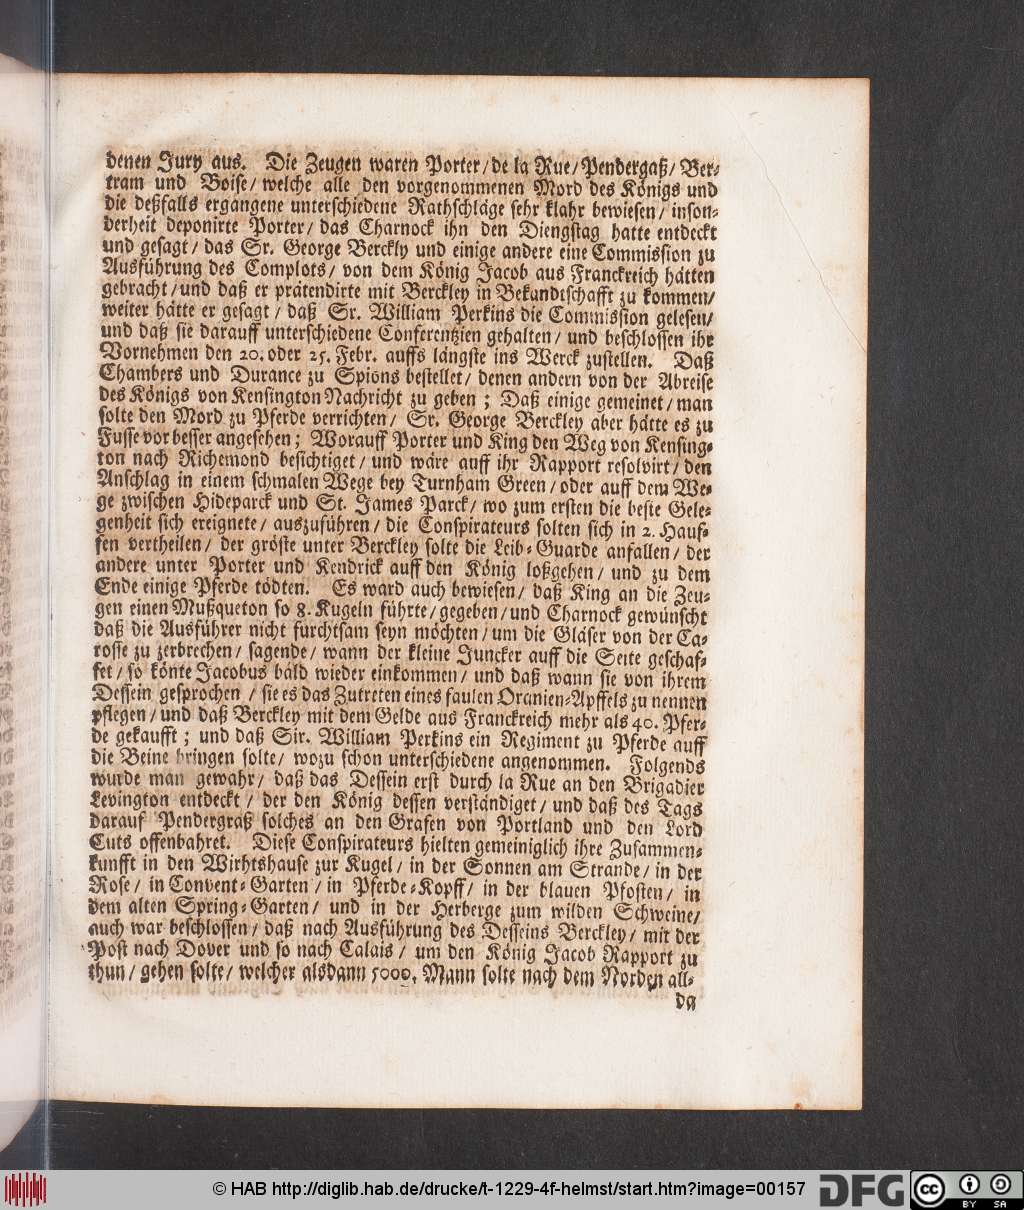 denen Jury aus. Die Zeugen waren Porter/ de la Rue/ Pendergaß/ Ber-
tram und Boise/ welche alle den vorgenommenen Mord des Königs und
die deßfalls ergangene unterschiedene Rathschläge sehr klahr bewiesen/ inson-
derheit deponirte Porter/ das Charnock ihn den Diengstag hatte entdeckt
und gesagt/ das Sr. George Berckly und einige andere eine Commission zu
Ausführung des Complots/ von dem König Jacob aus Franckreich hätten
gebracht/ und daß er prätendirte mit Berckley in Bekandtschafft zu kommen/
weiter hätte er gesagt/ daß Sr. William Perkins die Commission gelesen/
und daß sie darauff unterschiedene Conferentzien gehalten/ und beschlossen ihr
Vornehmen den 20. oder 25. Febr. auffs längste ins Werck zustellen. Daß
Chambers und Durance zu Spions bestellet/ denen andern von der Abreise
des Königs von Kensington Nachricht zu geben; Daß einige gemeinet/ man
solte den Mord zu Pferde verrichten/ Sr. George Berckley aber hätte es zu
Fusse vor besser angesehen; Worauff Porter und King den Weg von Kensing-
ton nach Richemond besichtiget/ und wäre auff ihr Rapport resolvirt/ den
Anschlag in einem schmalen Wege bey Turnham Green/ oder auff dem We-
ge zwischen Hideparck und St. James Parck/ wo zum ersten die beste Gele-
genheit sich ereignete/ auszuführen/ die Conspirateurs solten sich in 2. Hauf-
fen vertheilen/ der gröste unter Berckley solte die Leib-Guarde anfallen/ der
andere unter Porter und Kendrick auff den König loßgehen/ und zu dem
Ende einige Pferde tödten. Es ward auch bewiesen/ daß King an die Zeu-
gen einen Mußqueton so 8. Kugeln führte/ gegeben/ und Charnock gewünscht
daß die Ausführer nicht furchtsam seyn möchten/ um die Gläser von der Ca-
rosse zu zerbrechen/ sagende/ wann der kleine Juncker auff die Seite geschaf-
fet/ so könte Jacobus bald wieder einkommen/ und daß wann sie von ihrem
Dessein gesprochen/ sie es das Zutreten eines faulen Oranien-Apffels zu nennen
pflegen/ und daß Berckley mit dem Gelde aus Franckreich mehr als 40. Pfer-
de gekaufft; und daß Sir. William Perkins ein Regiment zu Pferde auff
die Beine bringen solte/ wozu schon unterschiedene angenommen. Folgends
wurde man gewahr/ daß das Dessein erst durch la Rue an den Brigadier
Levington entdeckt/ der den König dessen verständiget/ und daß des Tags
darauf Pendergraß solches an den Grafen von Portland und den Lord
Cuts offenbahret. Diese Conspirateurs hielten gemeiniglich ihre Zusammen-
kunfft in den Wirhtshause zur Kugel/ in der Sonnen am Strande/ in der
Rose/ in Convent-Garten/ in Pferde-Kopff/ in der blauen Pfosten/ in
dem alten Spring-Garten/ und in der Herberge zum wilden Schweine/
auch war beschlossen/ daß nach Ausführung des Desseins Berckley/ mit der
Post nach Dover und so nach Calais/ um den König Jacob Rapport zu
thun/ gehen solte/ welcher alsdann 5000. Mann solte nach dem Norden all-
da
© HAB http://diglib.hab.de/drucke/t-1229-4f-helmst/start.htm?image=00157
DFG
cc BY SA